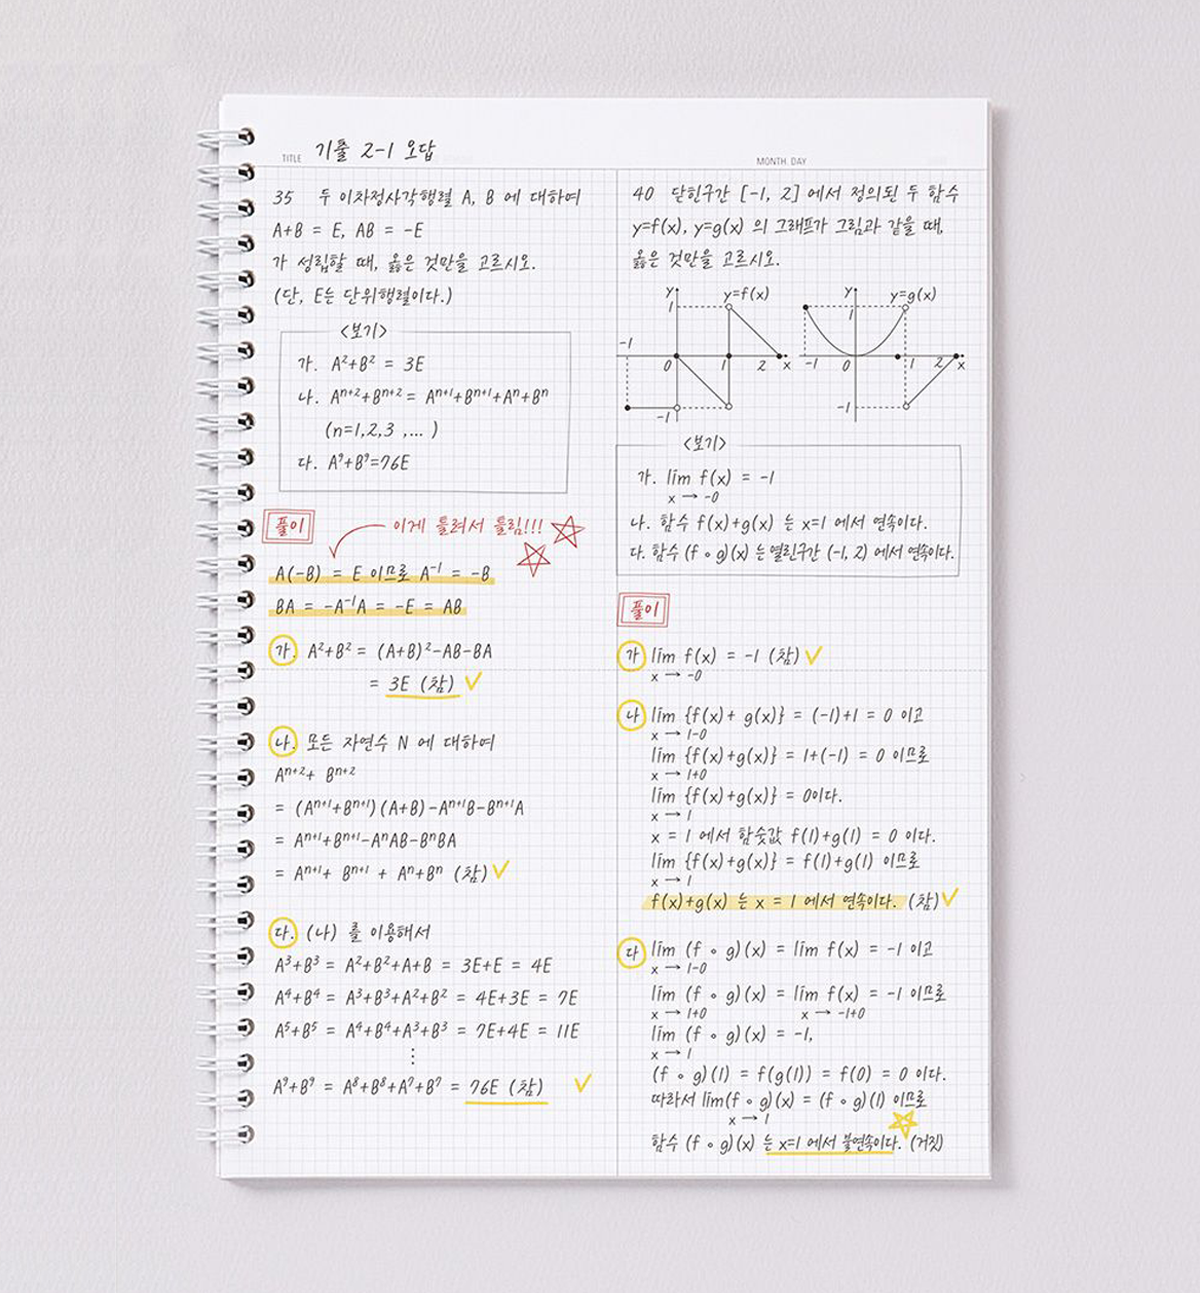 TITLE 기풀 2-1 오답
MONTH. DAY
35 두 이차정사각행렬 A, B 에 대하여
A+B = E, AB = -E
가 성립할 때, 옳은 것만을 고르시오.
(단, E는 단위행렬이다.)
<보기>
가. A²+B² = 3E
나. Aⁿ⁺²+Bⁿ⁺² = Aⁿ⁺¹+Bⁿ⁺¹+Aⁿ+Bⁿ
(n=1,2,3 ,... )
다. A⁹+B⁹=76E
풀이
이게 틀려서 틀림!!!
A(-B) = E 이므로 A⁻¹ = -B
BA = -A⁻¹A = -E = AB
가. A²+B² = (A+B)²-AB-BA
= 3E (참)
나. 모든 자연수 N 에 대하여
Aⁿ⁺²+ Bⁿ⁺²
= (Aⁿ⁺¹+Bⁿ⁺¹)(A+B)-Aⁿ⁺¹B-Bⁿ⁺¹A
= Aⁿ⁺¹+Bⁿ⁺¹-AⁿAB-BⁿBA
= Aⁿ⁺¹+ Bⁿ⁺¹ + Aⁿ+Bⁿ (참)
다. (나) 를 이용해서
A³+B³ = A²+B²+A+B = 3E+E = 4E
A⁴+B⁴ = A³+B³+A²+B² = 4E+3E = 7E
A⁵+B⁵ = A⁴+B⁴+A³+B³ = 7E+4E = 11E
⋮
A⁹+B⁹ = A⁸+B⁸+A⁷+B⁷ = 76E (참)
40 닫힌구간 [-1, 2] 에서 정의된 두 함수
y=f(x), y=g(x) 의 그래프가 그림과 같을 때,
옳은 것만을 고르시오.
y y=f(x)
1
-1
0 1 2 x
-1
y y=g(x)
1
-1 0 1 2 x
-1
<보기>
가. lim f(x) = -1
x → -0
나. 함수 f(x)+g(x) 는 x=1 에서 연속이다.
다. 함수 (f ∘ g)(x) 는 열린구간 (-1, 2) 에서 연속이다.
풀이
가 lim f(x) = -1 (참)
x → -0
나 lim {f(x)+ g(x)} = (-1)+1 = 0 이고
x → 1-0
lim {f(x)+g(x)} = 1+(-1) = 0 이므로
x → 1+0
lim {f(x)+g(x)} = 0이다.
x → 1
x = 1 에서 함숫값 f(1)+g(1) = 0 이다.
lim {f(x)+g(x)} = f(1)+g(1) 이므로
x → 1
f(x)+g(x) 는 x = 1 에서 연속이다. (참)
다 lim (f ∘ g)(x) = lim f(x) = -1 이고
x → 1-0
lim (f ∘ g)(x) = lim f(x) = -1 이므로
x → 1+0 x → -1+0
lim (f ∘ g)(x) = -1,
x → 1
(f ∘ g)(1) = f(g(1)) = f(0) = 0 이다.
따라서 lim(f ∘ g)(x) = (f ∘ g)(1) 이므로
x → 1
함수 (f ∘ g)(x) 는 x=1 에서 불연속이다. (거짓)